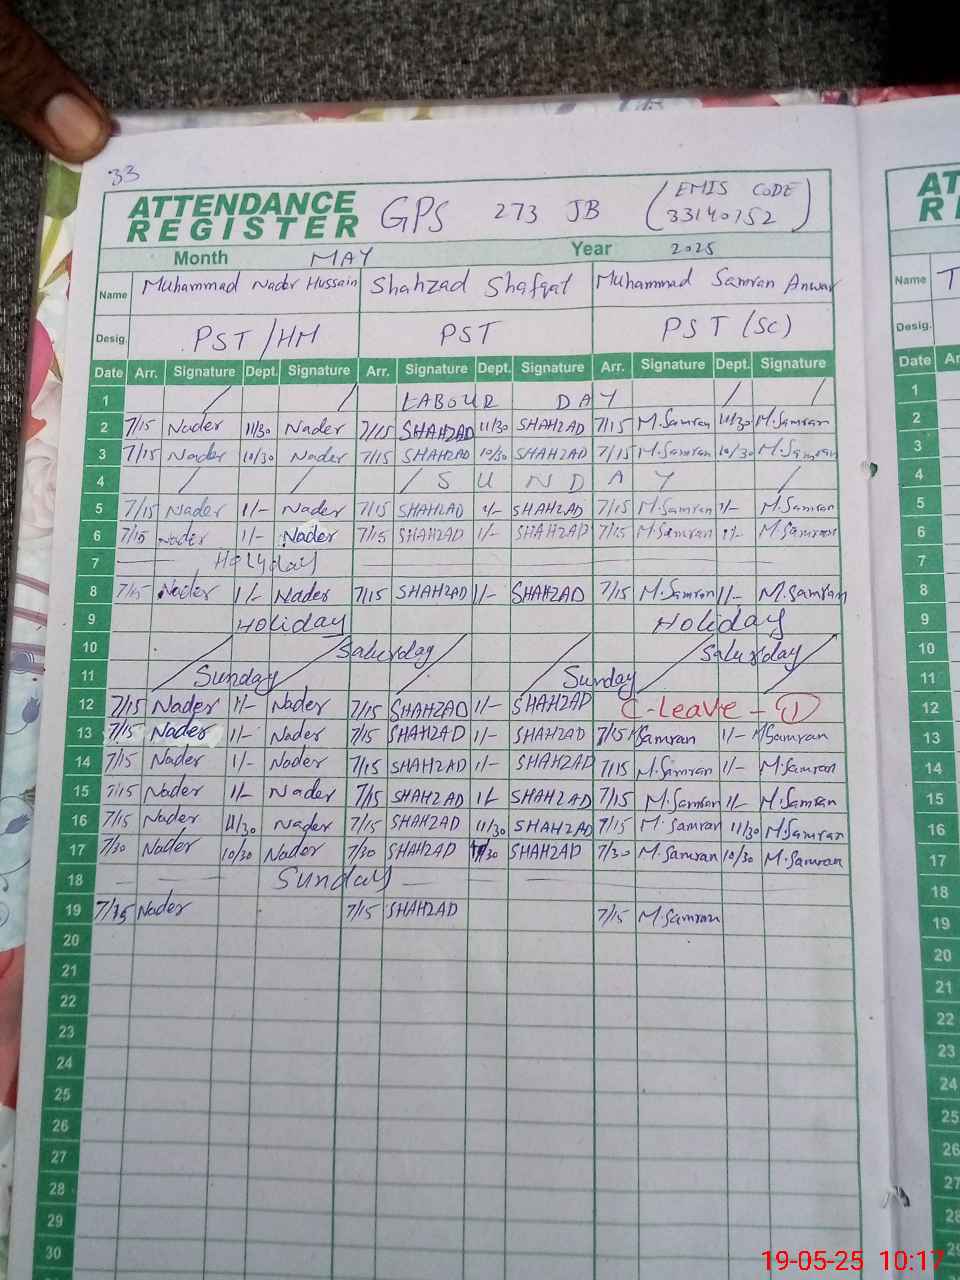 33
ATTENDANCE REGISTER GPS 273 JB (EMIS CODE 33140152)
Month MAY Year 2025
Name Muhammad Nader Hussain Shahzad Shafqat Muhammad Samran Anwar
Desig. PST/HM PST PST (SC)
Date Arr. Signature Dept. Signature Arr. Signature Dept. Signature Arr. Signature Dept. Signature
1 LABOUR DAY
2 7/15 Nader 11/30 Nader 7/15 SHAHZAD 11/30 SHAHZAD 7/15 M.Samran 11/30 M.Samran
3 7/15 Nader 10/30 Nader 7/15 SHAHZAD 10/30 SHAHZAD 7/15 M.Samran 10/30 M.Samran
4 SUNDAY
5 7/15 Nader 1/- Nader 7/15 SHAHZAD 1/- SHAHZAD 7/15 M.Samran 1/- M.Samran
6 7/15 Nader 1/- Nader 7/15 SHAHZAD 1/- SHAHZAD 7/15 M.Samran 1/- M.Samran
7 Holyday
8 7/15 Nader 1/- Nader 7/15 SHAHZAD 1/- SHAHZAD 7/15 M.Samran 1/- M.Samran
9 Holiday Holiday
10 Saturday Saturday
11 Sunday Sunday
12 7/15 Nader 1/- Nader 7/15 SHAHZAD 1/- SHAHZAD C-Leave - 1
13 7/15 Nader 1/- Nader 7/15 SHAHZAD 1/- SHAHZAD 7/15 M.Samran 1/- M.Samran
14 7/15 Nader 1/- Nader 7/15 SHAHZAD 1/- SHAHZAD 7/15 M.Samran 1/- M.Samran
15 7/15 Nader 1/- Nader 7/15 SHAHZAD 1/- SHAHZAD 7/15 M.Samran 1/- M.Samran
16 7/15 Nader 11/30 Nader 7/15 SHAHZAD 11/30 SHAHZAD 7/15 M.Samran 11/30 M.Samran
17 7/30 Nader 10/30 Nader 7/30 SHAHZAD 10/30 SHAHZAD 7/30 M.Samran 10/30 M.Samran
18 Sunday
19 7/15 Nader 7/15 SHAHZAD 7/15 M.Samran
20
21
22
23
24
25
26
27
28
29
30
AT
RE
Name T
Desig.
Date Ar
1
2
3
4
5
6
7
8
9
10
11
12
13
14
15
16
17
18
19
20
21
22
23
24
25
26
27
28
19-05-25 10:17